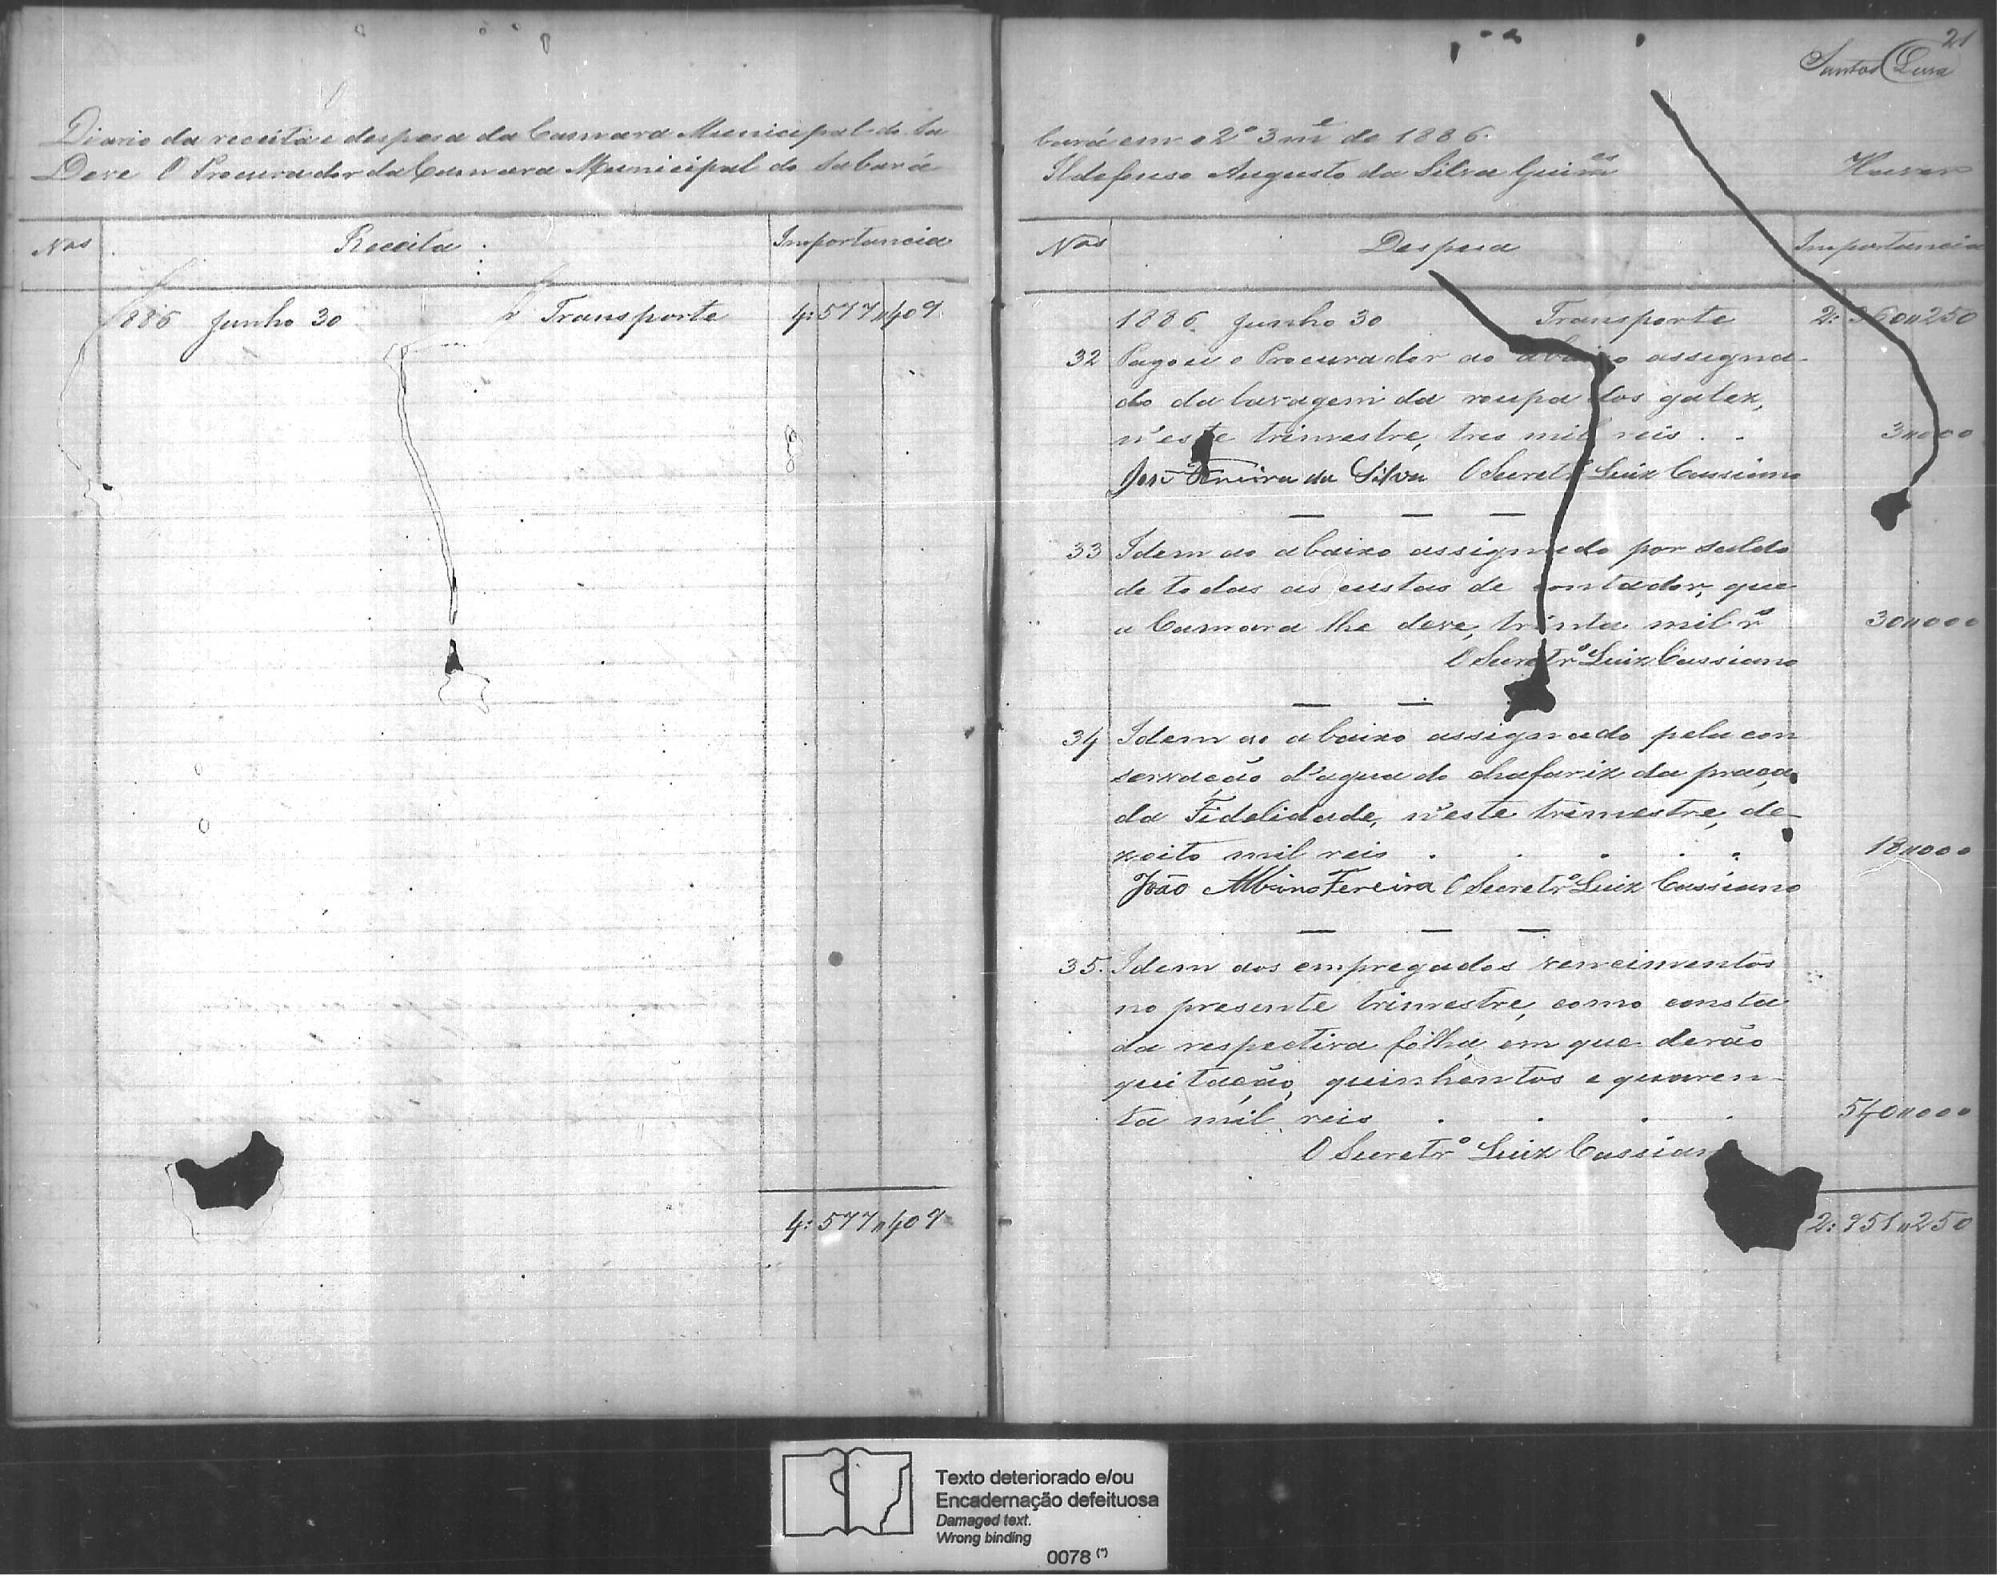 Diario da receita e despesa da Camara Municipal de Sa
Deve O Procurador da Camara Municipal de Sabará
Nos Receita Importancia
1886 Junho 30 Transporte 4:577"409
4:577"409
21
Santos Lura
bará em o 2º 3mê de 1886.
Ildefonso Augusto da Silva Guimes Haver
Nos Despesa Importancia
1886 Junho 30 Transporte 2:360"250
32 Pagou o Procurador ao abaixo assigna-
do da lavagem da roupa dos galez,
n'este trimestre, tres mil reis . . 3"000
José Ferreira da Silva O Secretrº Luiz Cassiano
33 Idem ao abaixo assignado por saldo
de todas as custas de contador, que
a Camara lhe deve, trinta mil rs 30"000
O Secretrº Luiz Cassiano
34 Idem ao abaixo assignado pela con
servação d'agua do chafariz da praça
da Fidelidade, n'este trimestre, de-
zoito mil reis . . . . . 18"000
João Albino Fereira O Secretrº Luiz Cassiano
35. Idem aos empregados vencimentos
no presente trimestre, como consta
da respectiva folha, em que derão
quitação, quinhentos e quaren-
ta mil reis . . . . 540"000
O Secretrº Luiz Cassiano
2:951"250
Texto deteriorado e/ou
Encadernação defeituosa
Damaged text.
Wrong binding
0078 (*)